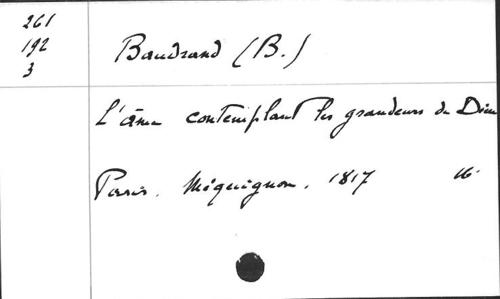 261
192
3
Baudrand (B.)
L'âme contemplant les grandeurs de Dieu
Paris. Méquignon. 1817 16.